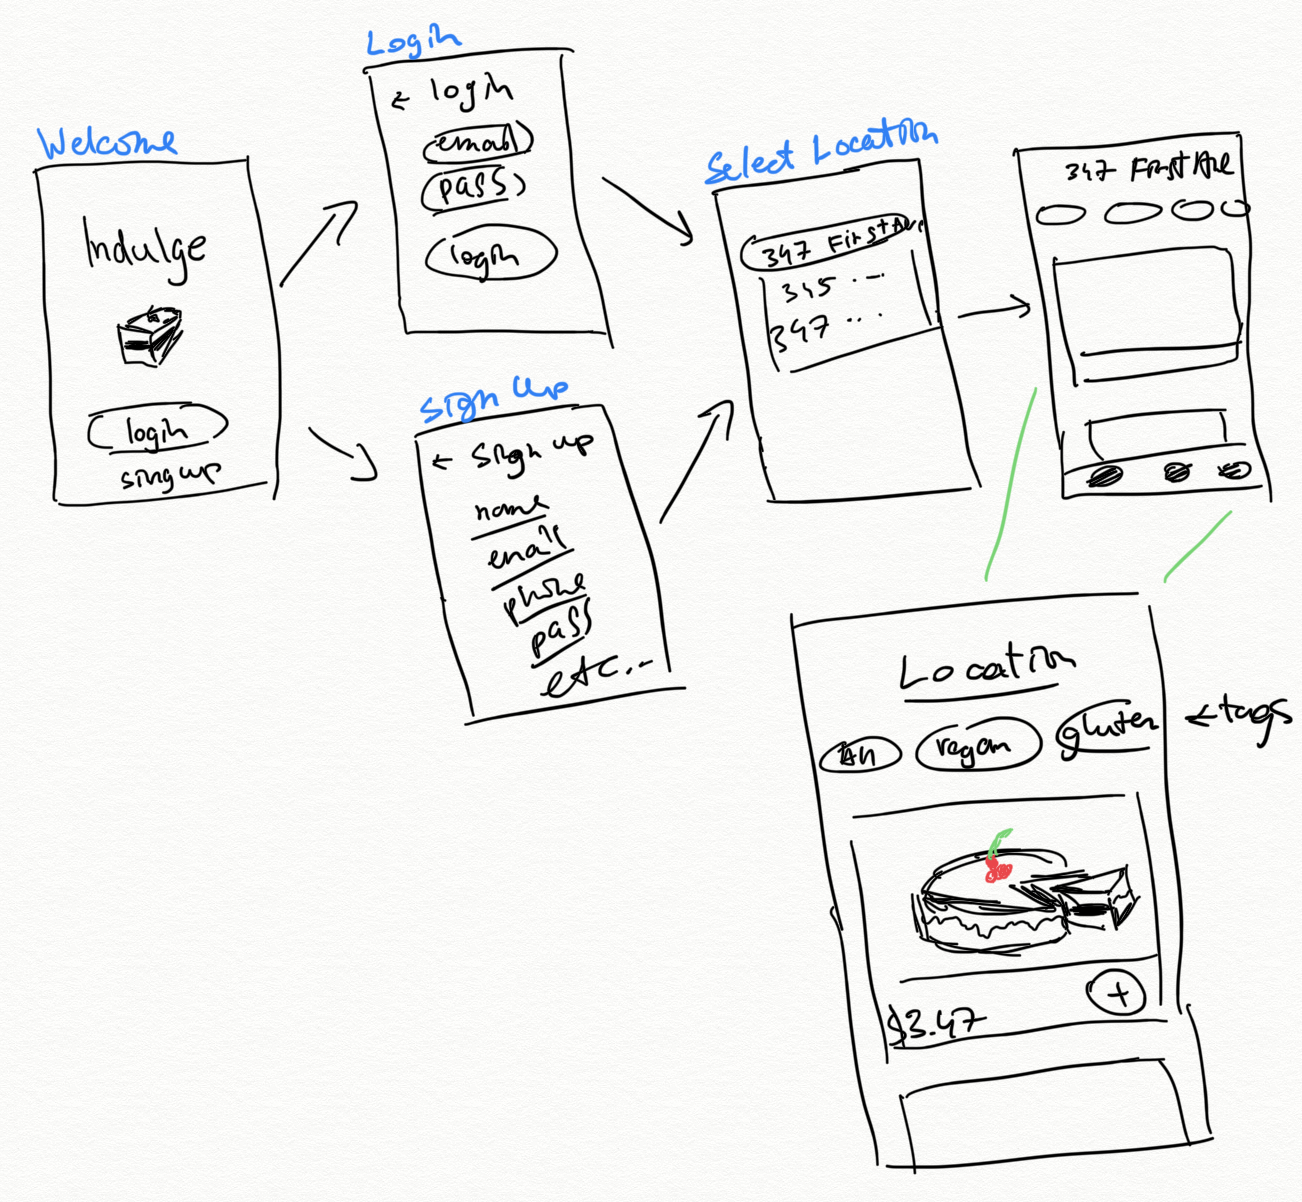 Welcome
Indulge
login
singup
Login
← login
email
pass
login
Sign Up
← Sign up
name
email
phone
pass
etc...
Select Location
347 First Ave
345 ...
347 ...
347 First Ave
Location
All
vegan
gluten
← tags
$3.47
+